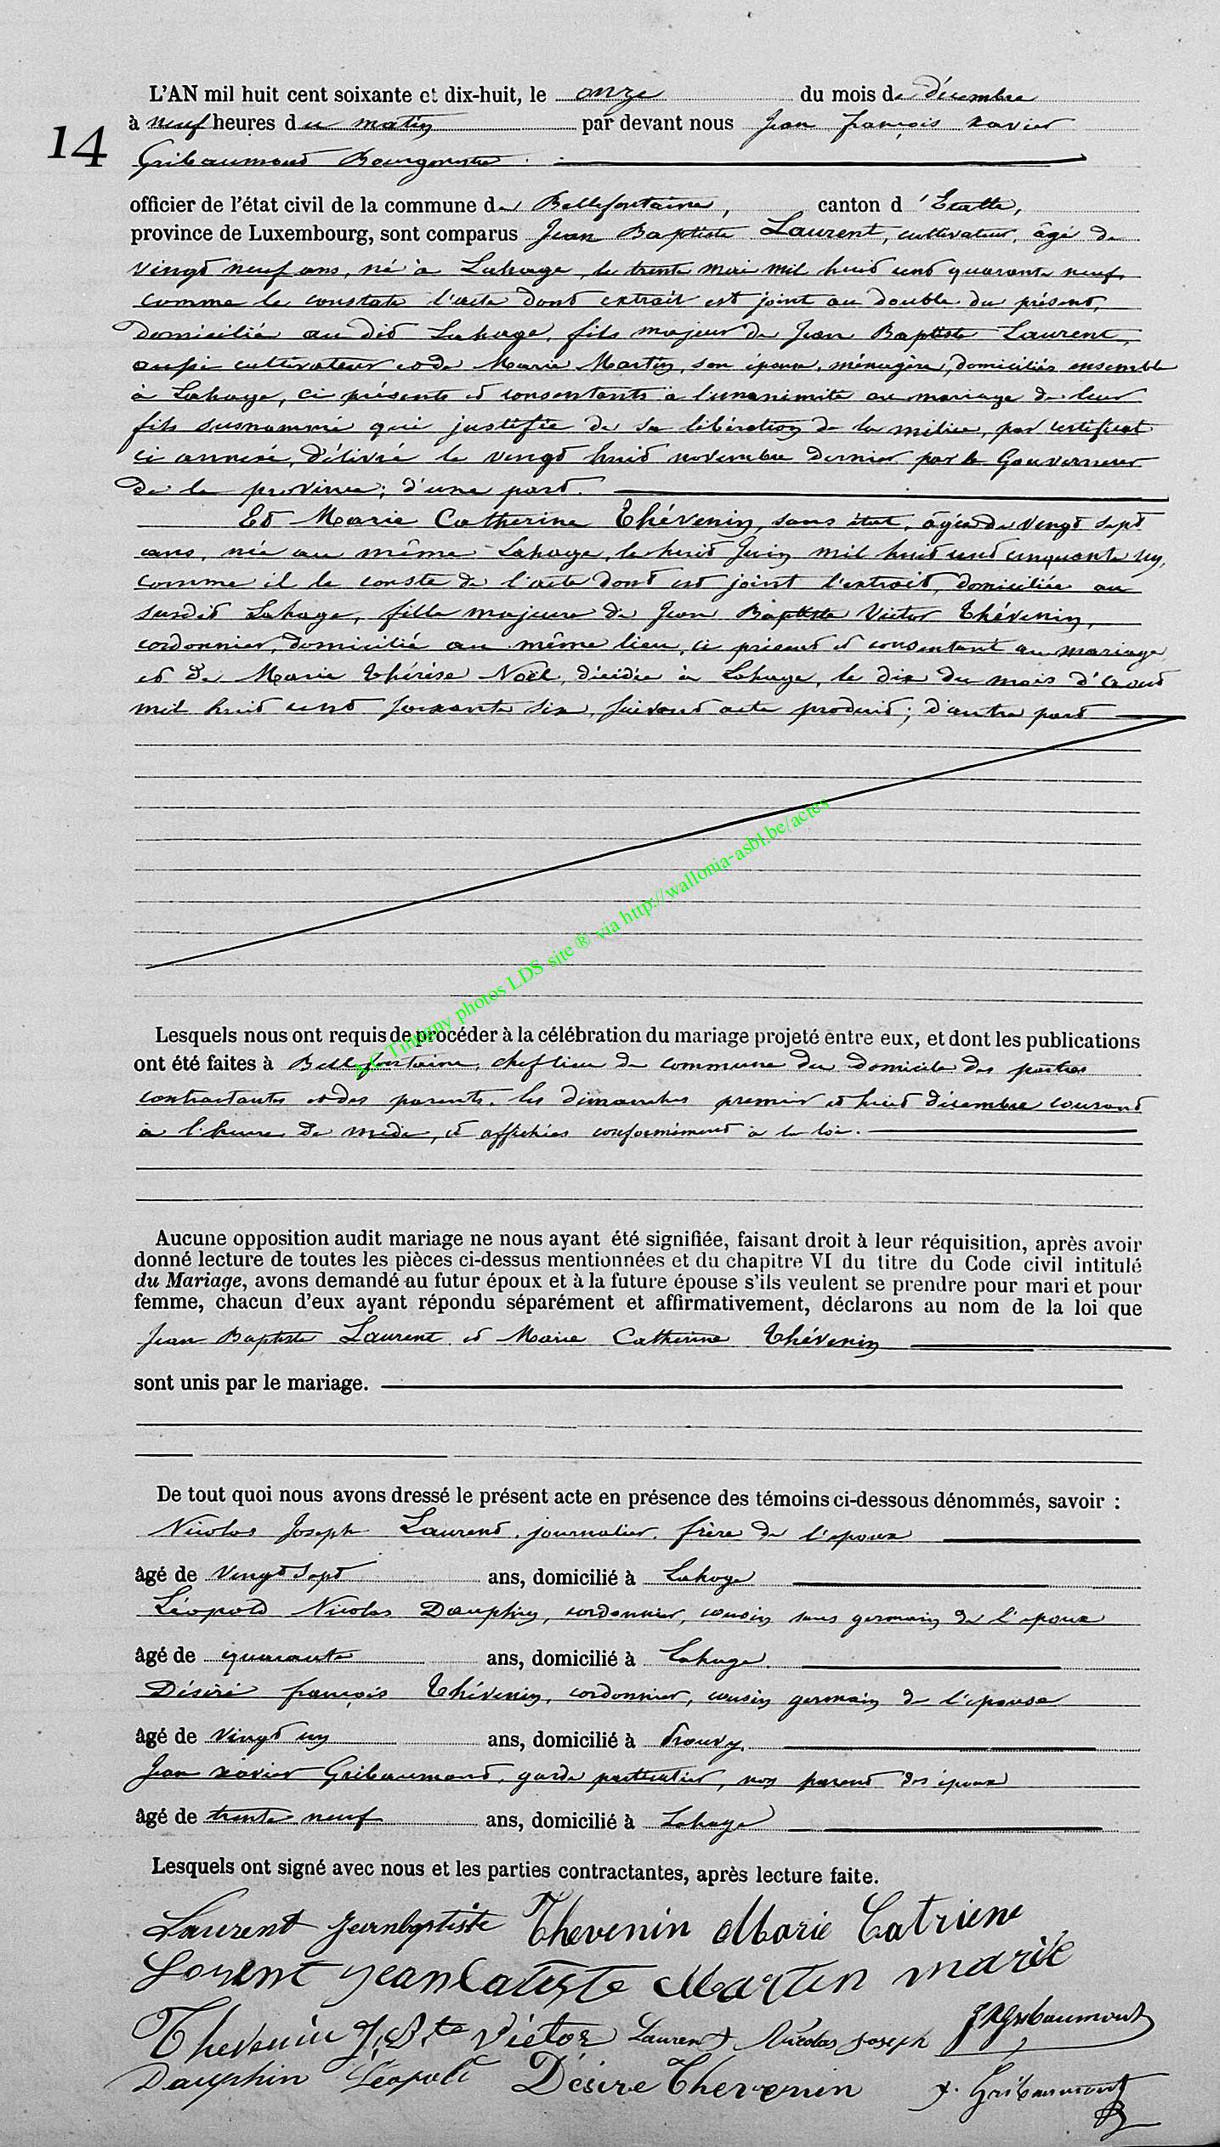 L'AN mil huit cent soixante et dix-huit, le onze du mois de décembre
à neuf heures du matin par devant nous Jean françois xavier
14
Gribaumont Bourgmestre.
officier de l'état civil de la commune de Bellefontaine, canton d'Etalle,
province de Luxembourg, sont comparus Jean Baptiste Laurent, cultivateur, âgé de
vingt neuf ans, né à Lahage, le trente mai mil huit cent quarante neuf,
comme le constate l'acte dont extrait est joint au double du présent,
domicilié au dit Lahage, fils majeur de Jean Baptiste Laurent,
aussi cultivateur et de Marie Martin, son épouse, ménagère, domiciliés ensemble
à Lahage, ci présents et consentants à l'unanimité au mariage de leur
fils susnommé qui justifie de sa libération de la milice, par certificat
ci annexé, délivré le vingt huit novembre dernier par le Gouverneur
de la province; d'une part.
Et Marie Catherine Thévenin, sans état, âgée de vingt sept
ans, née au même Lahage, le huit Juin mil huit cent cinquante un,
comme il le conste de l'acte dont est joint l'extrait, domiciliée au
susdit Lahage, fille majeure de Jean Baptiste Victor Thévenin,
cordonnier, domicilié au même lieu, ci présent et consentant au mariage
et de Marie Thérèse Noël, décédée à Lahage, le dix du mois d'Aout
mil huit cent soixante six, suivant acte produit; d'autre part
LC Tintigny photos LDS site ® via http://wallonia-asbl.be/actes
Lesquels nous ont requis de procéder à la célébration du mariage projeté entre eux, et dont les publications
ont été faites à Bellefontaine, chef lieu de commune du domicile des parties
contractantes et des parents, les dimanches premier et huit décembre courant
à l'heure de midi, et affichées conformément à la loi.
Aucune opposition audit mariage ne nous ayant été signifiée, faisant droit à leur réquisition, après avoir
donné lecture de toutes les pièces ci-dessus mentionnées et du chapitre VI du titre du Code civil intitulé
du Mariage, avons demandé au futur époux et à la future épouse s'ils veulent se prendre pour mari et pour
femme, chacun d'eux ayant répondu séparément et affirmativement, déclarons au nom de la loi que
Jean Baptiste Laurent et Marie Catherine Thévenin
sont unis par le mariage.
De tout quoi nous avons dressé le présent acte en présence des témoins ci-dessous dénommés, savoir :
Nicolas Joseph Laurent, journalier, frère de l'époux
âgé de vingt sept ans, domicilié à Lahage
Léopold Nicolas Dauphin, cordonnier, cousin sous germain de l'époux
âgé de quarante ans, domicilié à Lahage.
Désiré françois Thévenin, cordonnier, cousin germain de l'épouse
âgé de vingt un ans, domicilié à Prouvy,
Jean xavier Gribaumont, garde particulier, non parent des époux
âgé de trente neuf ans, domicilié à Lahage
Lesquels ont signé avec nous et les parties contractantes, après lecture faite.
Laurent Jeanbaptiste Thevenin Marie Catriene
Lorent jean batiste Martin marie
Thevenin J. Bte Victor Laurent Nicolas joseph JXGribaumont
Dauphin Léopold Désiré Thevenin x. Gribaumont